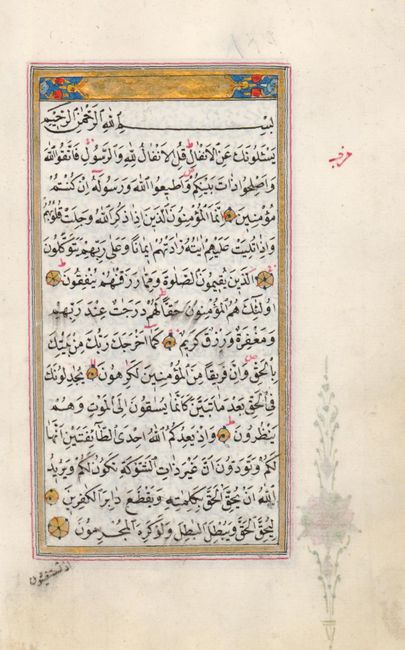 بسم الله الرحمن الرحيم
يسئلونك عن الانفال قل الانفال لله والرسول فاتقوا الله
واصلحوا ذات بينكم واطيعوا الله ورسوله ان كنتم
مؤمنين انما المؤمنون الذين اذا ذكر الله وجلت قلوبهم
واذا تليت عليهم اياته زادتهم ايمانا وعلى ربهم يتوكلون
الذين يقيمون الصلوة ومما رزقناهم ينفقون
اولئك هم المؤمنون حقا لهم درجات عند ربهم
ومغفرة ورزق كريم كما اخرجك ربك من بيتك
بالحق وان فريقا من المؤمنين لكارهون يجادلونك
في الحق بعد ما تبين كانما يساقون الى الموت وهم
ينظرون واذ يعدكم الله احدى الطائفتين انها
لكم وتودون ان غير ذات الشوكة تكون لكم ويريد
الله ان يحق الحق بكلماته ويقطع دابر الكافرين
ليحق الحق ويبطل الباطل ولو كره المجرمون
حزب
اذ تستغيثون